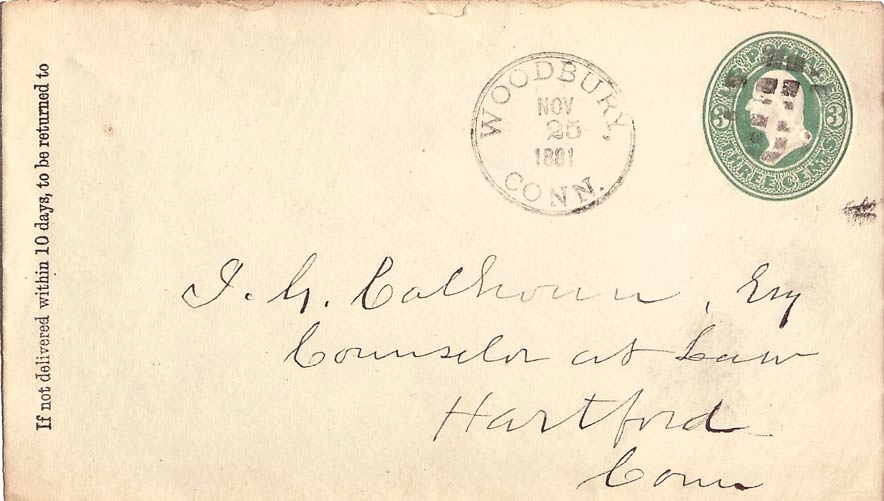 If not delivered within 10 days, to be returned to
WOODBURY,
NOV
25
1881
CONN.
U.S. POSTAGE
3 3
THREE CENTS
J. G. Calhoun, Esq
Counselor at Law
Hartford
Conn